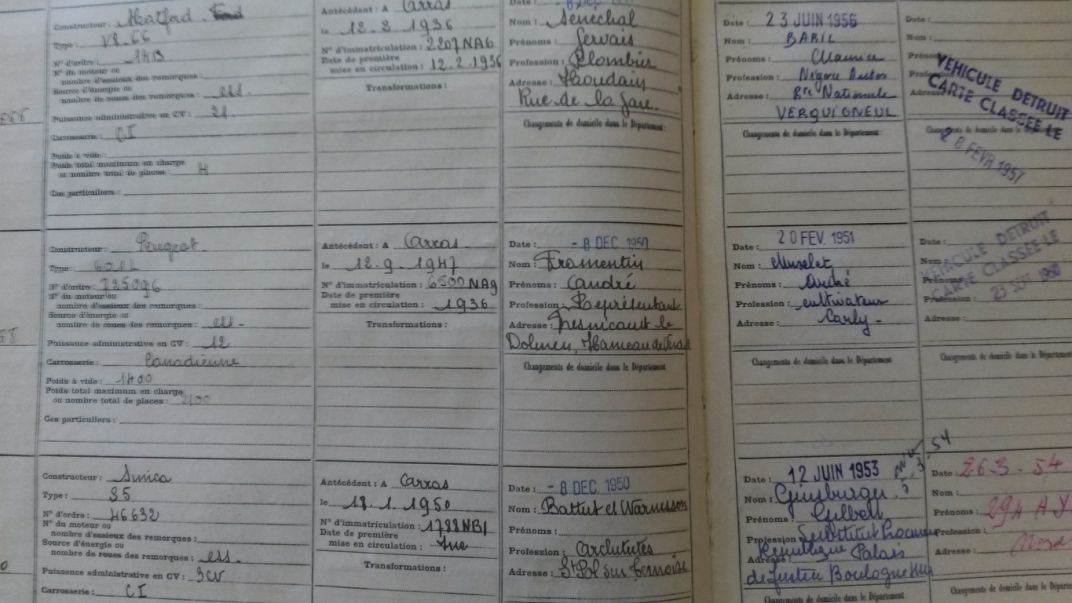 Constructeur : Matford
Type : V8-66
N° d'ordre :
N° du moteur ou
nombre d'essieux des remorques :
Source d'énergie ou
nombre de roues des remorques : ess
Puissance administrative en CV : 21
Carrosserie : CI
Poids à vide :
Poids total maximum en charge
ou nombre total de places : 4
Cas particuliers :
Antécédent : A Arras
le 12.2.1936
N° d'immatriculation : 2207NA6
Date de première
mise en circulation : 12.2.1936
Transformations :
Nom : Senechal
Prénoms : Gervais
Profession : Plombier
Adresse : Houdain
Rue de la Gare.
Changements de domicile dans le Département :
Date : 23 JUIN 1956
Nom : BARIL
Prénoms : Maurice
Profession : Négoc Autos
Adresse : Rte Nationale
VERQUIGNEUL
Changements de domicile dans le Département :
Date :
Nom :
VEHICULE DETRUIT
CARTE CLASSEE LE
28 FEVR 1957
Constructeur : Peugeot
Type :
N° d'ordre : 725096
N° du moteur ou
nombre d'essieux des remorques :
Source d'énergie ou
nombre de roues des remorques : ess-
Puissance administrative en CV : 12
Carrosserie : Canadienne
Poids à vide : 1400
Poids total maximum en charge
ou nombre total de places : 2100
Cas particuliers :
Antécédent : A Arras
le 12.9.1947
N° d'immatriculation : 6500NA9
Date de première
mise en circulation : 1936
Transformations :
Date : -8 DEC 1950
Nom : Fromentin
Prénoms : André
Profession : Représentant
Adresse : Fresnicourt le
Dolmen, Hameau de
Changements de domicile dans le Département
Date : 20 FEV. 1951
Nom : Muselet
Prénoms : André
Profession : cultivateur
Adresse : Carly-
Changements de domicile dans le Département
Date :
Nom :
Prénoms :
Profession :
Adresse :
VEHICULE DETRUIT
CARTE CLASSEE LE
Changements de domicile dans le Département
Constructeur : Simca
Type : 5
N° d'ordre : 46632
N° du moteur ou
nombre d'essieux des remorques :
Source d'énergie ou
nombre de roues des remorques : ess-
Puissance administrative en CV : 3CV
Carrosserie : CI
Antécédent : A Arras
le 18.1.1950
N° d'immatriculation : 1788NB1
Date de première
mise en circulation :
Transformations :
Date : -8 DEC. 1950
Nom : Battut et Warnesson
Prénoms :
Profession : Architectes
Adresse : St Pol sur Ternoise
Date : 12 JUIN 1953
Nom : Guysburger
Prénoms : Gilbert
Profession : Substitut Procureur
République Palais
Adresse :
de Justice Boulogne
Changements de domicile dans le Département
Date : 26.3.54
Nom :
Prénoms : 294 AY
Profession :
Adresse : Nord
Changements de domicile dans le